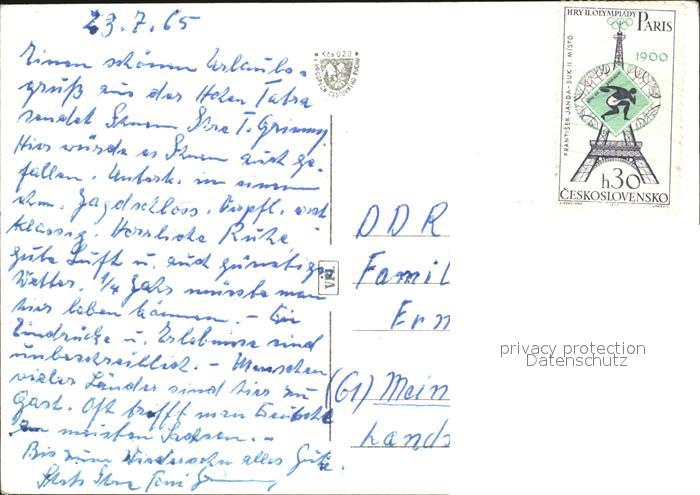 23.7.65
Einen schönen Urlaubs-
gruß aus der Hohen Tatra
sendet Ihnen Ihre T. Grimm.
Hier würde es Ihnen auch ge-
fallen. Unterk. in einem
ehm. Jagdschloss. Verpfl. erst-
klassig. Herrliche Ruhe,
gute Luft u. auch günstiges
Wetter. 1/4 Jahr müsste man
hier leben können. – Die
Eindrücke u. Erlebnisse sind
unbeschreiblich. – Menschen
vieler Länder sind hier zu
Gast. Oft trifft man Deutsche
am meisten Sachsen. –
Bis zum Wiedersehn alles Gute.
Stets Ihre
Kčs 0,20
VČL
HRY II. OLYMPIÁDY PARIS
1900
FRANTIŠEK JANDA-SUK II. MÍSTO
h30
ČESKOSLOVENSKO
DDR
Famil
Ern
(61) Mein
Lands
privacy protection
Datenschutz